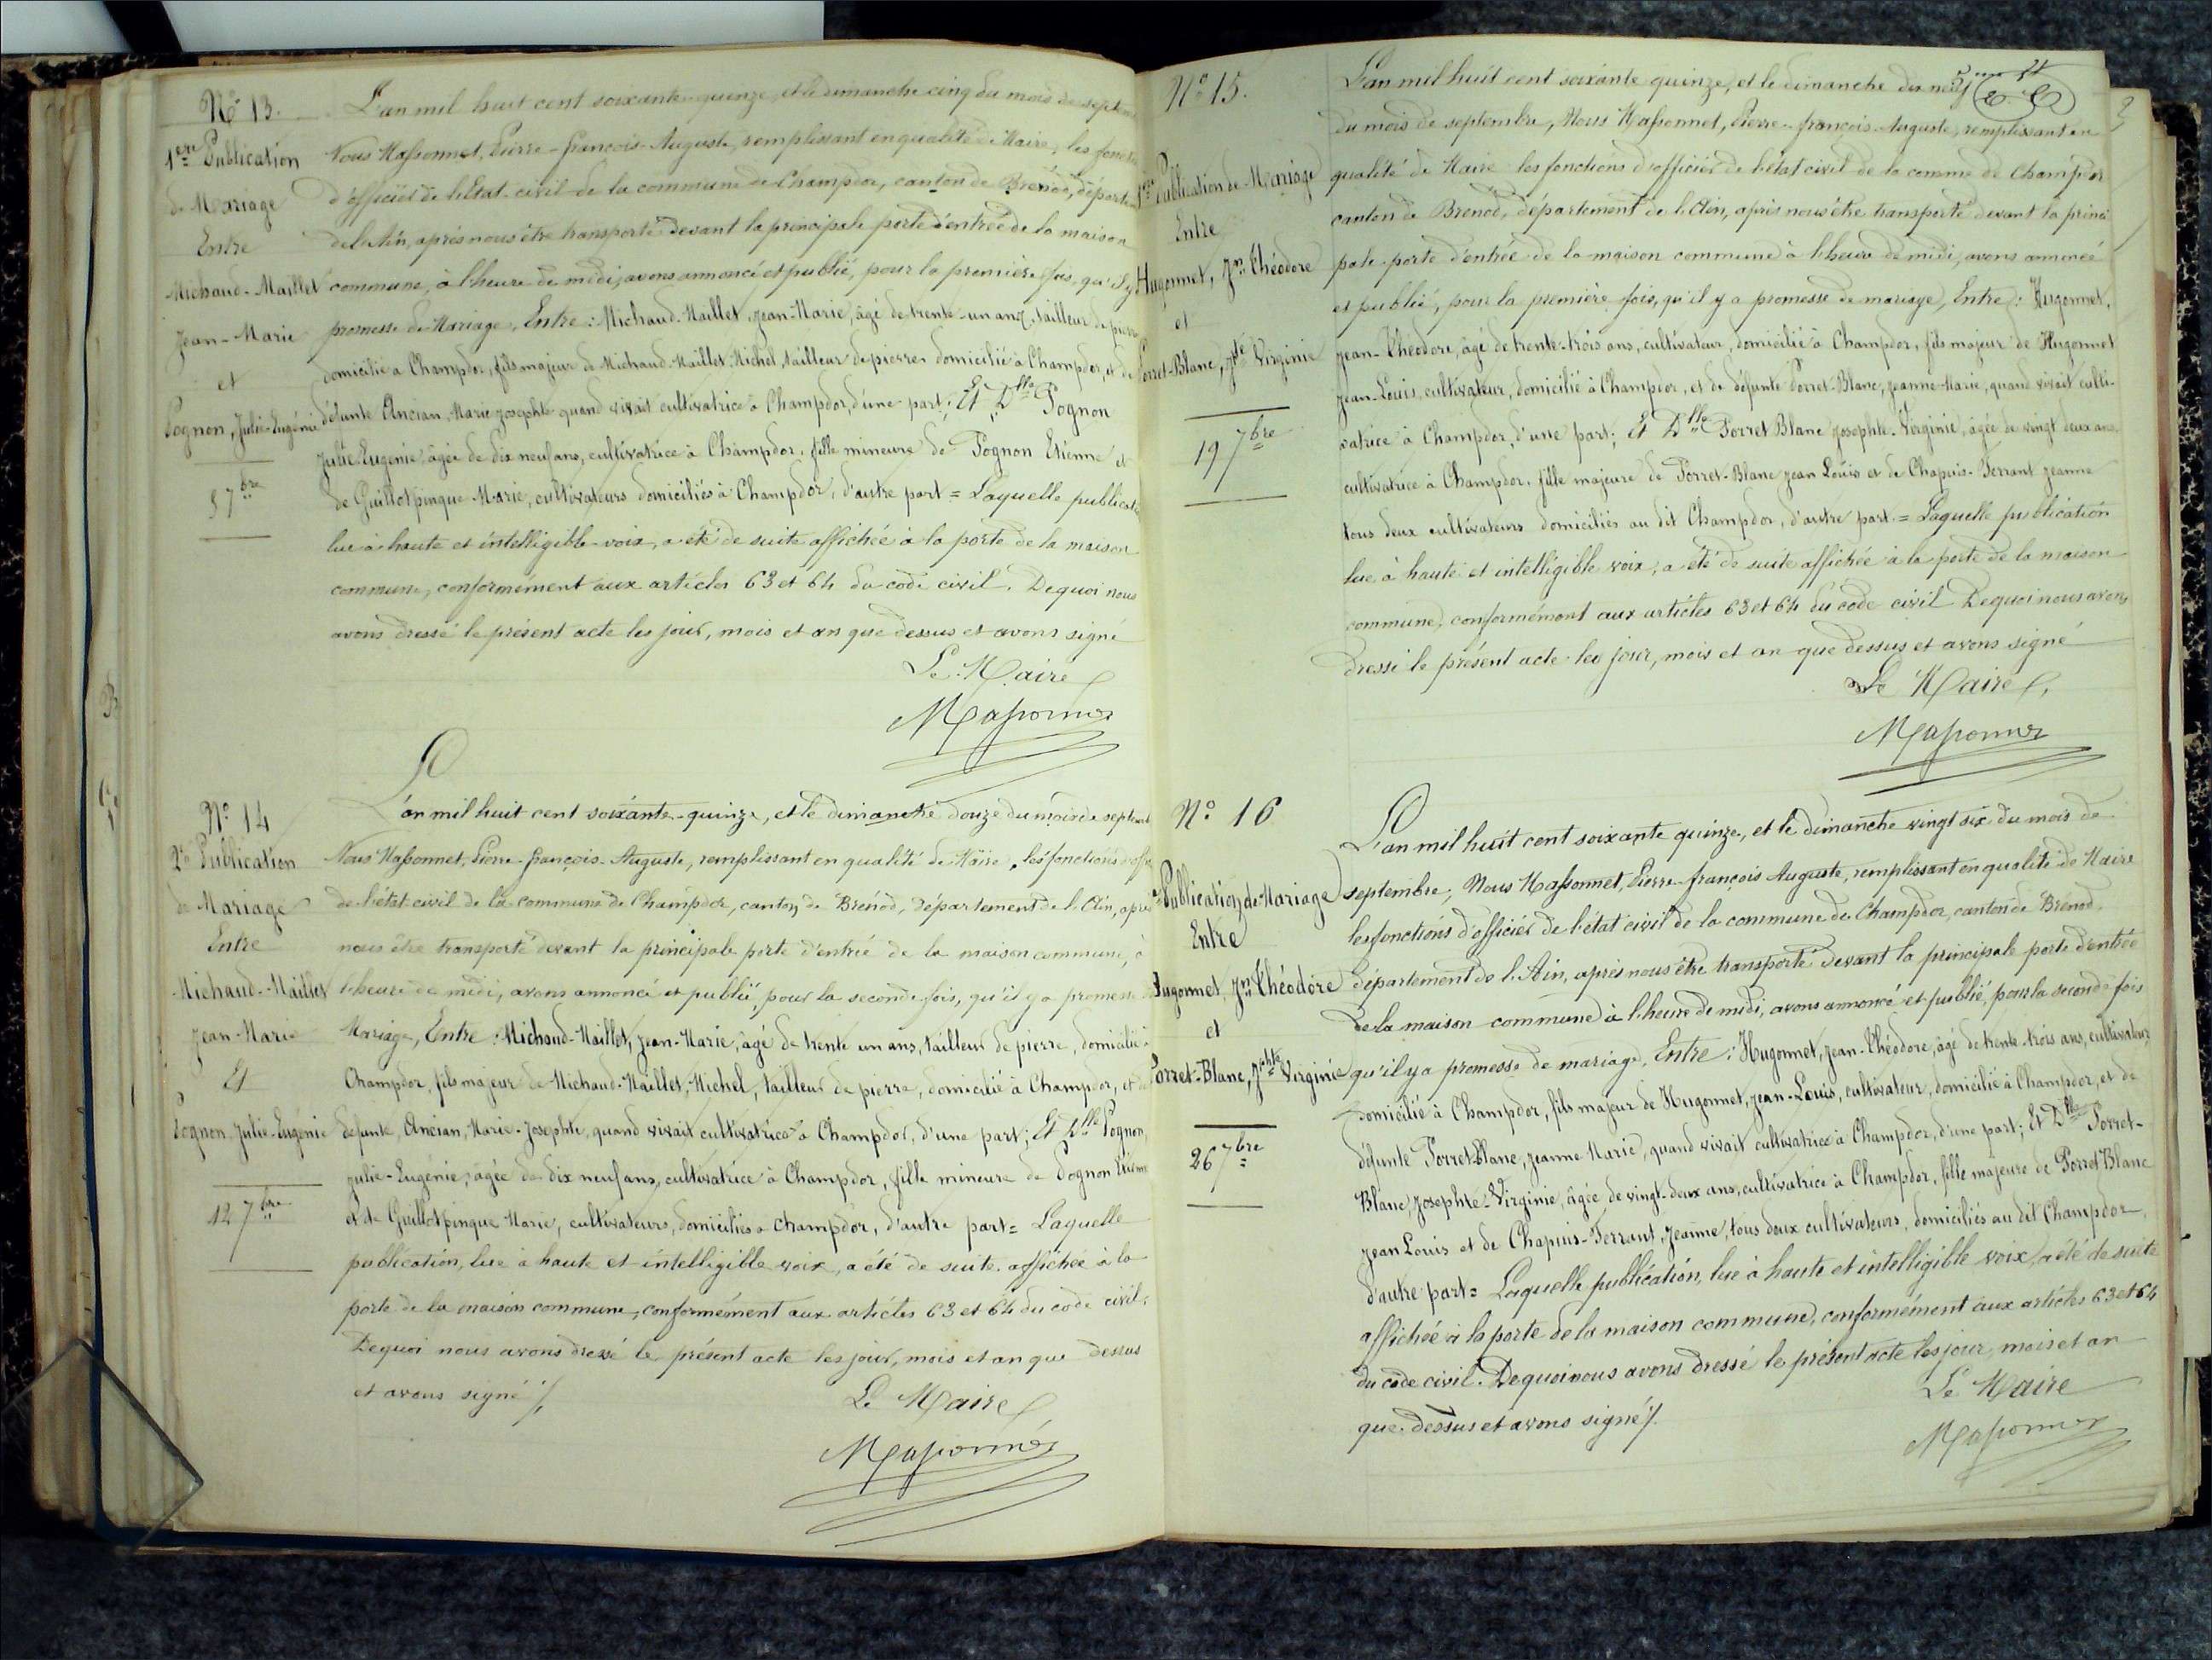 N° 13.
1ère Publication
de Mariage
Entre
Michaud-Maillet
Jean-Marie
et
Pognon, Julie-Eugénie
5 7bre
L'an mil huit cent soixante-quinze, et le dimanche cinq du mois de septem
Nous Massonnet, Pierre-François-Auguste, remplissant en qualité de Maire, les foncti
d'officier de l'Etat-civil de la commune de Champdor, canton de Brénod, départe
de l'Ain, après nous être transporté devant la principale porte d'entrée de la maison
commune, à l'heure de midi, avons annoncé et publié, pour la première fois, qu'il y
promesse de Mariage, Entre : Michaud-Maillet, Jean-Marie, âgé de trente-un ans, tailleur de pierre
domicilié à Champdor, fils majeur de Michaud-Maillet, Michel, tailleur de pierres domicilié à Champdor, et de
défunte Ancian, Marie-Josephte quand vivait cultivatrice à Champdor, d'une part; Et Dlle Pognon
Julie-Eugénie, âgée de dix neuf ans, cultivatrice à Champdor, fille mineure de Pognon Etienne et
de Guillotpinque Marie, cultivateurs domiciliés à Champdor, d'autre part = Laquelle publicati
lue à haute et intelligible voix, a été de suite affichée à la porte de la maison
commune, conformément aux articles 63 et 64 du code civil. De quoi nous
avons dressé le présent acte les jour, mois et an que dessus et avons signé
Le Maire
Massonnet
N° 14
2e Publication
de Mariage
Entre
Michaud-Maillet
Jean-Marie
Et
Pognon, Julie-Eugénie
12 7bre
L'an mil huit cent soixante-quinze, et le dimanche douze du mois de septemb
Nous Massonnet, Pierre-François-Auguste, remplissant en qualité de Maire, les fonctions d'offi
de l'état civil de la commune de Champdor, canton de Brénod, département de l'Ain, après
nous être transporté devant la principale porte d'entrée de la maison commune, à
l'heure de midi, avons annoncé et publié, pour la seconde fois, qu'il y a promesse
Mariage, Entre : Michaud-Maillet, Jean-Marie, âgé de trente un ans, tailleur de pierre, domicilié à
Champdor, fils majeur de Michaud-Maillet, Michel, tailleur de pierre, domicilié à Champdor, et de
défunte, Ancian, Marie-Josephte, quand vivait cultivatrice à Champdor, d'une part; Et Dlle Pognon,
Julie-Eugénie, âgée de dix neuf ans, cultivatrice à Champdor, fille mineure de Pognon Etienne
et de Guillotpinque Marie, cultivateurs, domiciliés à Champdor, d'autre part = Laquelle
publication, lue à haute et intelligible voix, a été de suite affichée à la
porte de la maison commune, conformément aux articles 63 et 64 du code civil.
De quoi nous avons dressé le présent acte les jour, mois et an que dessus
et avons signé /.
Le Maire
Massonnet
N° 15.
1ère Publication de Mariage
Entre
Hugonnet, Jn Théodore
et
Porret-Blanc, Jhte Virginie
19 7bre
L'an mil huit cent soixante quinze, et le dimanche dix neuf
du mois de septembre, Nous Massonnet, Pierre-François-Auguste, remplissant en
qualité de Maire les fonctions d'officier de l'état civil de la comme de Champdor
canton de Brenod, département de l'Ain, après nous être transporté devant la princi
pale porte d'entrée de la maison commune à l'heure de midi, avons annoncé
et publié, pour la première fois, qu'il y a promesse de mariage, Entre : Hugonnet,
Jean-Théodore, âgé de trente-trois ans, cultivateur, domicilié à Champdor, fils majeur de Hugonnet
Jean-Louis, cultivateur, domicilié à Champdor, et de défunte Porret-Blanc, Jeanne-Marie, quand vivait culti-
vatrice à Champdor, d'une part; Et Dlle Porret Blanc Josephte-Virginie, âgée de vingt deux ans,
cultivatrice à Champdor, fille majeure de Porret-Blanc Jean Louis et de Chapuis-Ferrant Jeanne
tous deux cultivateurs domiciliés au dit Champdor, d'autre part = Laquelle publication
lue à haute et intelligible voix, a été de suite affichée à la porte de la maison
commune, conformément aux articles 63 et 64 du code civil De quoi nous avons
dressé le présent acte les jour, mois et an que dessus et avons signé
Le Maire
Massonnet
N° 16
Publication de Mariage
Entre
Hugonnet, Jn Théodore
et
Porret-Blanc, Jphte Virginie
26 7bre
L'an mil huit cent soixante quinze, et le dimanche vingt six du mois de
septembre; Nous Massonnet, Pierre-François Auguste, remplissant en qualité de Maire
les fonctions d'officier de l'état civil de la commune de Champdor, canton de Brenod,
département de l'Ain, après nous être transporté devant la principale porte d'entrée
de la maison commune à l'heure de midi, avons annoncé et publié, pour la seconde fois
qu'il y a promesse de mariage, Entre : Hugonnet, Jean-Théodore, âgé de trente-trois ans, cultivateur
domicilié à Champdor, fils majeur de Hugonnet, Jean-Louis, cultivateur, domicilié à Champdor, et de
défunte Porret-Blanc, Jeanne Marie, quand vivait cultivatrice à Champdor, d'une part; Et Dlle Porret-
Blanc, Josephte-Virginie, âgée de vingt-deux ans, cultivatrice à Champdor, fille majeure de Porret Blanc
Jean Louis et de Chapuis-Ferrant, Jeanne, tous deux cultivateurs, domiciliés au dit Champdor,
d'autre part = Laquelle publication, lue à haute et intelligible voix, a été de suite
affichée à la porte de la maison commune, conformément aux articles 63 et 64
du code civil. De quoi nous avons dressé le présent acte les jour, mois et an
que dessus et avons signé /.
Le Maire
Massonnet